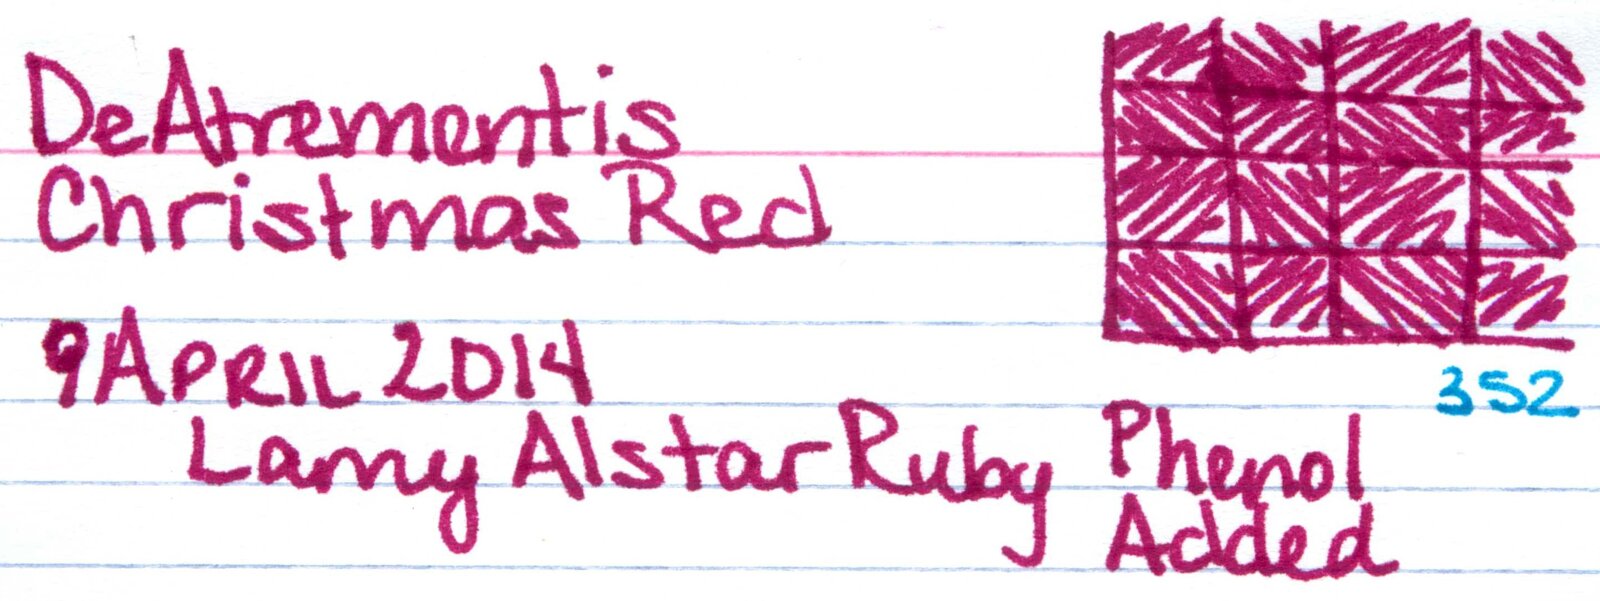 DeAtrementis
Christmas Red
9 APRIL 2014
352
Lamy Alstar Ruby Phenol
Added